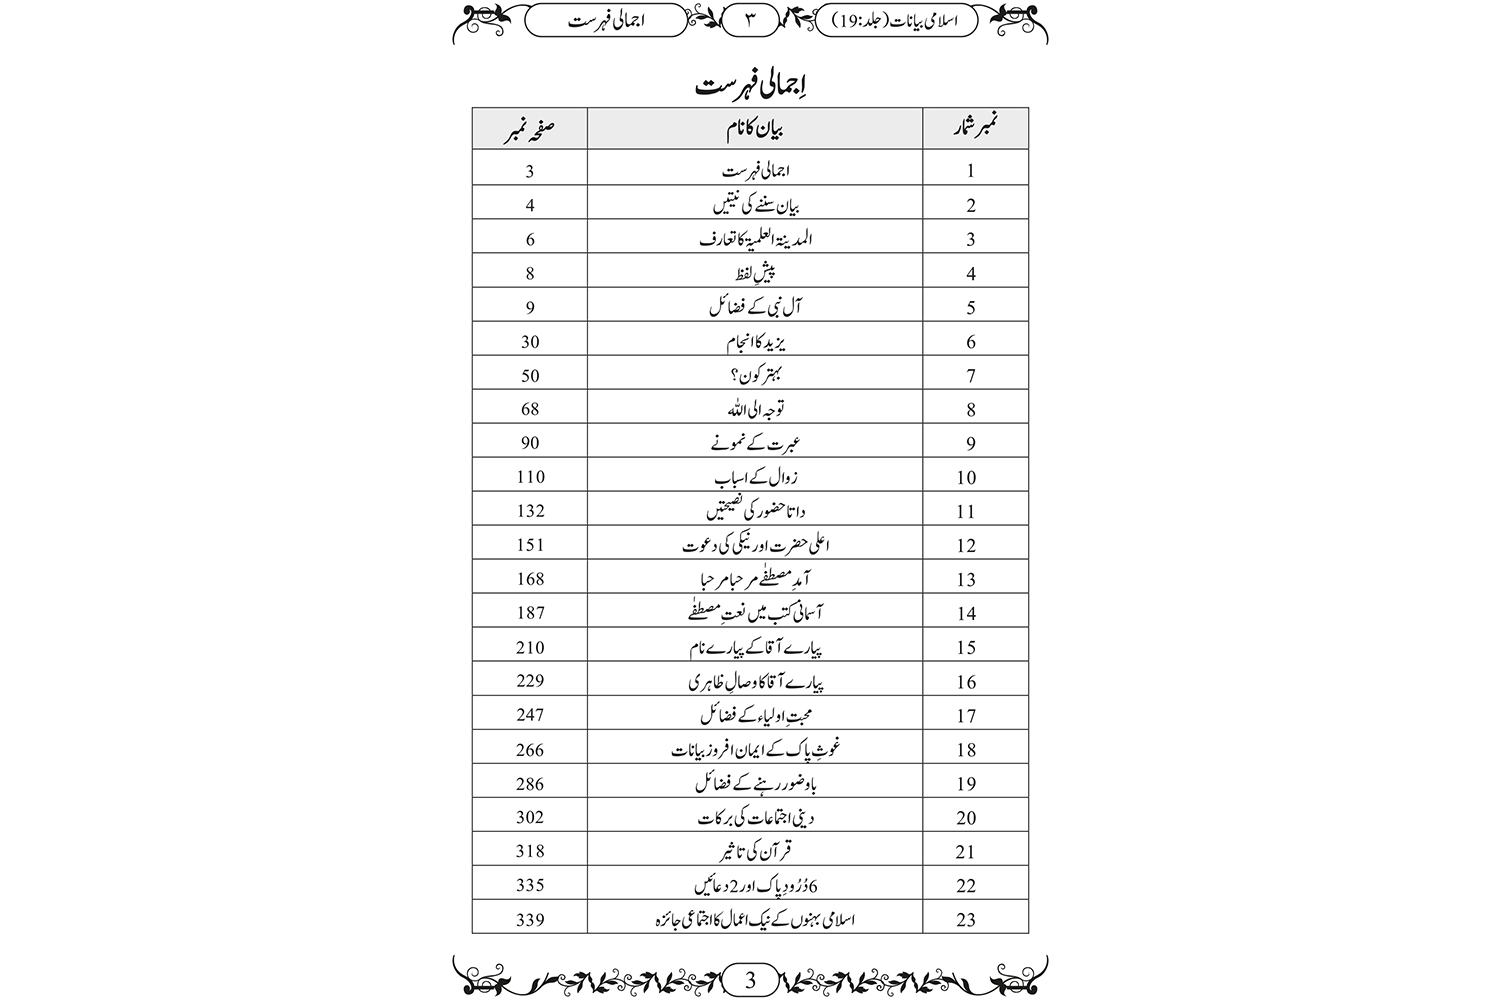 اسلامی بیانات (جلد:19) ۳ اجمالی فہرست
اِجمالی فہرست
نمبر شمار بیان کا نام صفحہ نمبر
1 اجمالی فہرست 3
2 بیان سننے کی نیتیں 4
3 المدینۃ العلمیۃ کا تعارف 6
4 پیشِ لفظ 8
5 آل نبی کے فضائل 9
6 یزید کا انجام 30
7 بہتر کون؟ 50
8 توجہ الی اللہ 68
9 عبرت کے نمونے 90
10 زوال کے اسباب 110
11 داتا حضور کی نصیحتیں 132
12 اعلی حضرت اور نیکی کی دعوت 151
13 آمدِ مصطفےٰ مرحبا مرحبا 168
14 آسمانی کتب میں نعتِ مصطفےٰ 187
15 پیارے آقا کے پیارے نام 210
16 پیارے آقا کا وصالِ ظاہری 229
17 محبتِ اولیاء کے فضائل 247
18 غوثِ پاک کے ایمان افروز بیانات 266
19 باوضو رہنے کے فضائل 286
20 دینی اجتماعات کی برکات 302
21 قرآن کی تاثیر 318
22 6 دُرُودِ پاک اور 2 دعائیں 335
23 اسلامی بہنوں کے نیک اعمال کا اجتماعی جائزہ 339
3